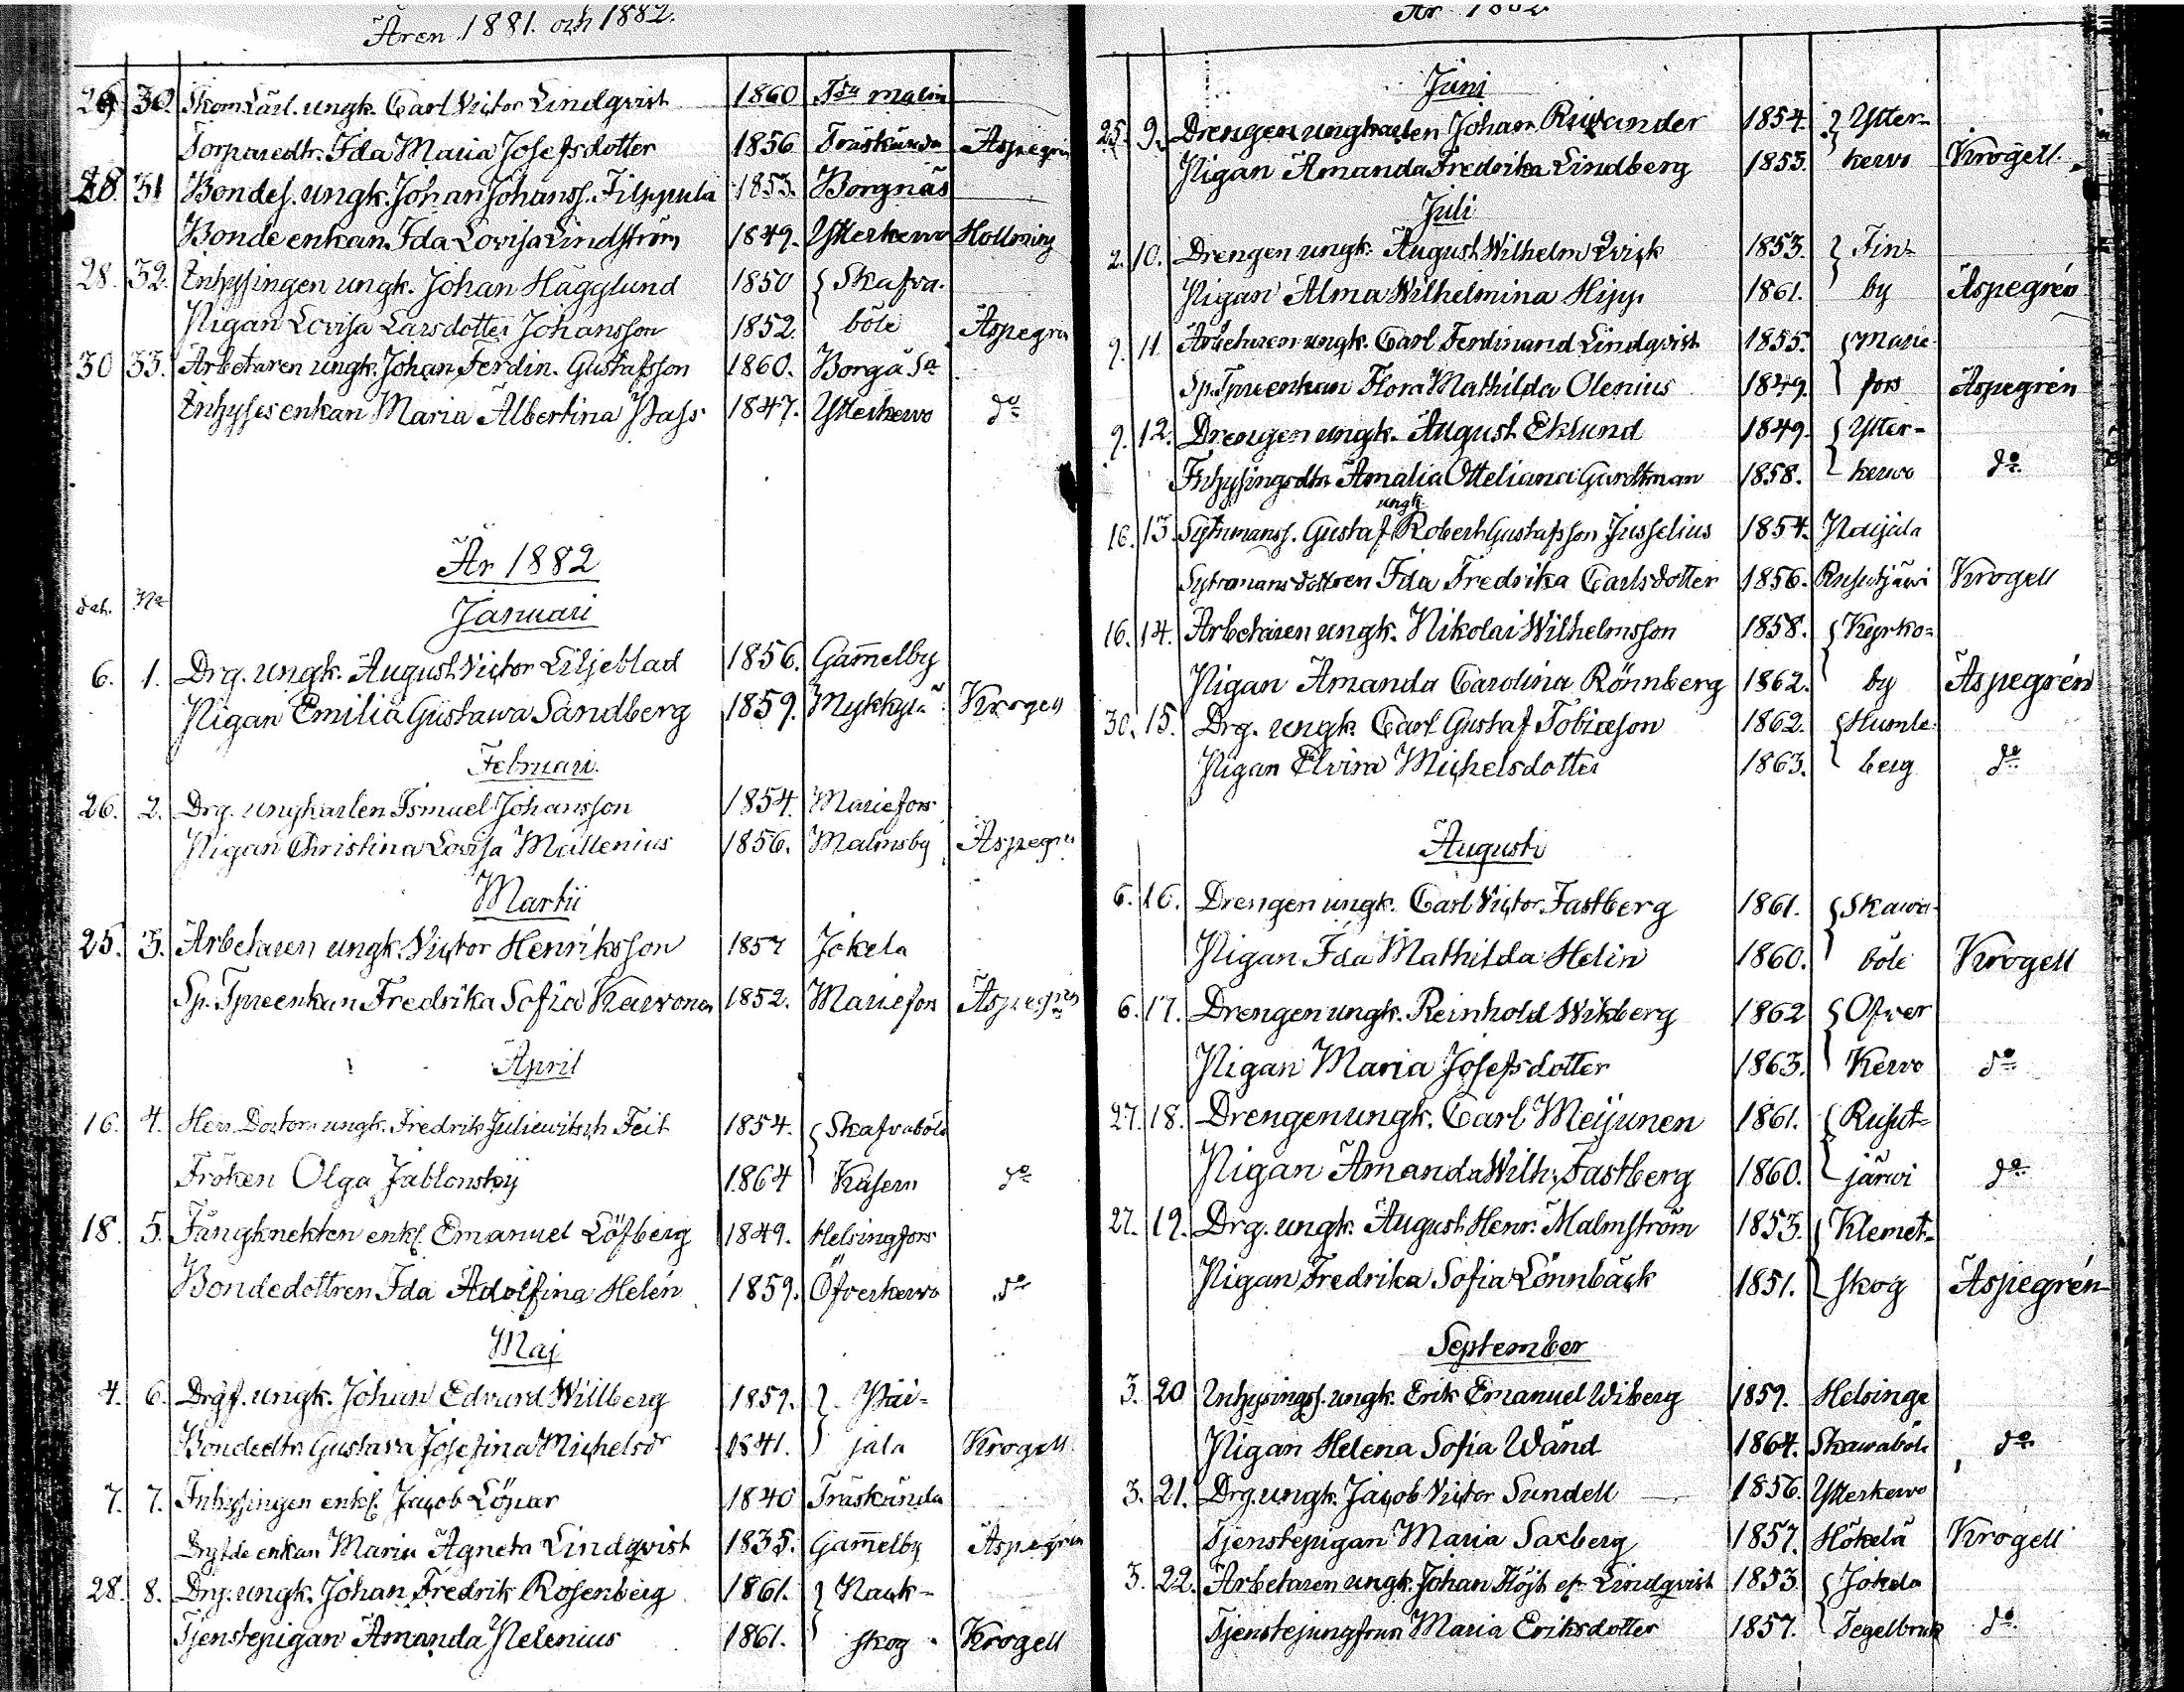 Åren 1881. och 1882.
29 30. Skom.Lärl. ungk. Carl Victor Lindqvist 1860
Torparedtr. Ida Maria Josefsdotter 1856 Träskända Aspegrén
28. 31 Bondes. ungk. Johan Johanss. Filppula 1853. Borgnäs
Bonde enkan Ida Lovisa Lindström 1849. Ytterkervo Hollming
28. 32. Inhysingen ungk. Johan Hägglund 1850 { Skafva-
Pigan Lovisa Larsdotter Johansson 1852. böle Aspegrén
30 33. Arbetaren ungk. Johan Ferdin. Gustafsson 1860. Borgå Sn
Inhyses enkan Maria Albertina Pass 1847. Ytterkervo do
År 1882
dat. No
Januari
6. 1. Drg. ungk. August Victor Liljeblad 1856. Gam̄elby
Pigan Emilia Gustawa Sandberg 1859. Mykkylä Krogell
Februari.
26. 2. Drg. ungkarlen Ismael Johansson 1854. Mariefors
Pigan Christina Lovisa Mallenius 1856. Malmsby Aspegrén
Martii
25. 3. Arbetaren ungk. Victor Henriksson 1857 Jokela
Sp. Tpreenkan Fredrika Sofia Karvonen 1852. Mariefors Aspegrén
April
16. 4. Herr Doctorn ungk. Fredrik Juliewitsch Feit 1854. { Skafvaböle
Fröken Olga Jablonskij 1864 Kasern do
18. 5. Fångknekten enkl. Emanuel Löfberg 1849. Helsingfors
Bondedottren Ida Adolfina Helén 1859. Öfverkervo do
Maj
4. 6. Drgs. ungk. Johan Edvard Willberg 1859. } Päi-
Bondedtr. Gustava Josefina Michelsdr 1841. jala Krogell
7. 7. Inhysingen enkl. Jacob Löpar 1840 Träskända
Drgsde enkan Maria Agneta Lindqvist 1835. Gam̄elby Aspegrén
28. 8. Drg. ungk. Johan Fredrik Rosenberg 1861. } Nack-
Tjenstepigan Amanda Pelenius 1861. skog Krogell
År 1882
Juni
25. 9. Drengen ungkarlen Johan Rivander 1854. } Ytter-
Pigan Amanda Fredrika Lindberg 1853. kervo Krogell.
Juli
2. 10. Drengen ungk. August Wilhelm Qvick 1853. } Fin-
Pigan Alma Wilhelmina Hipp 1861. by Aspegrén
9. 11. Arbetaren ungk. Carl Ferdinand Lindqvist 1855. { Marie-
Sp.Tpreenkan Flora Mathilda Olenius 1849. fors Aspegrén
9. 12. Drengen ungk. August Eklund 1849. { Ytter-
Inhysingsdtr. Amalia Otteliana Gardtman 1858. kervo do
ungk.
16. 13. Sytnmanss. Gustaf Robert Gustafsson Jusselius 1854. Paijala
Sytnmansdottren Ida Fredrika Carlsdotter 1856. Rusutjärvi Krogell
16. 14. Arbetaren ungk. Nikolai Wilhelmsson 1858. { Kyrko-
Pigan Amanda Carolina Rönnberg 1862. by Aspegrén
30. 15. Drg. ungk. Carl Gustaf Tobiason 1862. { Humle-
Pigan Elvira Michelsdotter 1863. berg do
Augusti
6. 16. Drengen ungk. Carl Victor Fastberg 1861. { Skawa-
Pigan Ida Mathilda Helin 1860. böle Krogell
6. 17. Drengen ungk. Reinhold Wikberg 1862 { Öfver
Pigan Maria Josefsdotter 1863. Kervo do
27. 18. Drengen ungk. Carl Meijunen 1861. { Rusut-
Pigan Amanda Wilh. Fastberg 1860. järvi do
27. 19. Drg. ungk. August Henr. Malmström 1853. { Klemet-
Pigan Fredrika Sofia Lönnbäck 1851. skog Aspegrén
September
3. 20 Inhysings s. ungk. Erik Emanuel Wiberg 1859. Helsinge
Pigan Helena Sofia Wänd 1864. Skawaböle do
3. 21. Drg. ungk. Jacob Victor Sundell 1856. Ytterkervo
Tjenstepigan Maria Saxberg 1857. Hökelä Krogell
3. 22. Arbetaren ungk. Johan Höjt el. Lindqvist 1853 { Jokela
Tjenstejungfrun Maria Eriksdotter 1857. Tegelbruk do